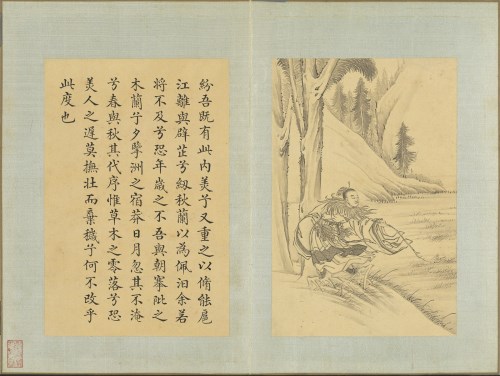 紛吾既有此內美兮又重之以脩能扈
江離與辟芷兮紉秋蘭以為佩汩余若
將不及兮恐年歲之不吾與朝搴阰之
木蘭兮夕擥洲之宿莽日月忽其不淹
兮春與秋其代序惟草木之零落兮恐
美人之遲莫撫壯而棄穢兮何不改乎
此度也